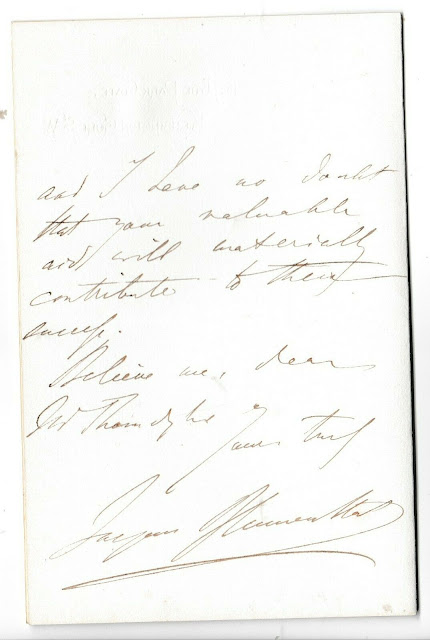 and I have no doubt
that your valuable
aid will materially
contribute to their
success.
Believe me, dear
Mr Thorndyke
Yours truly
Jacques Blumenthal